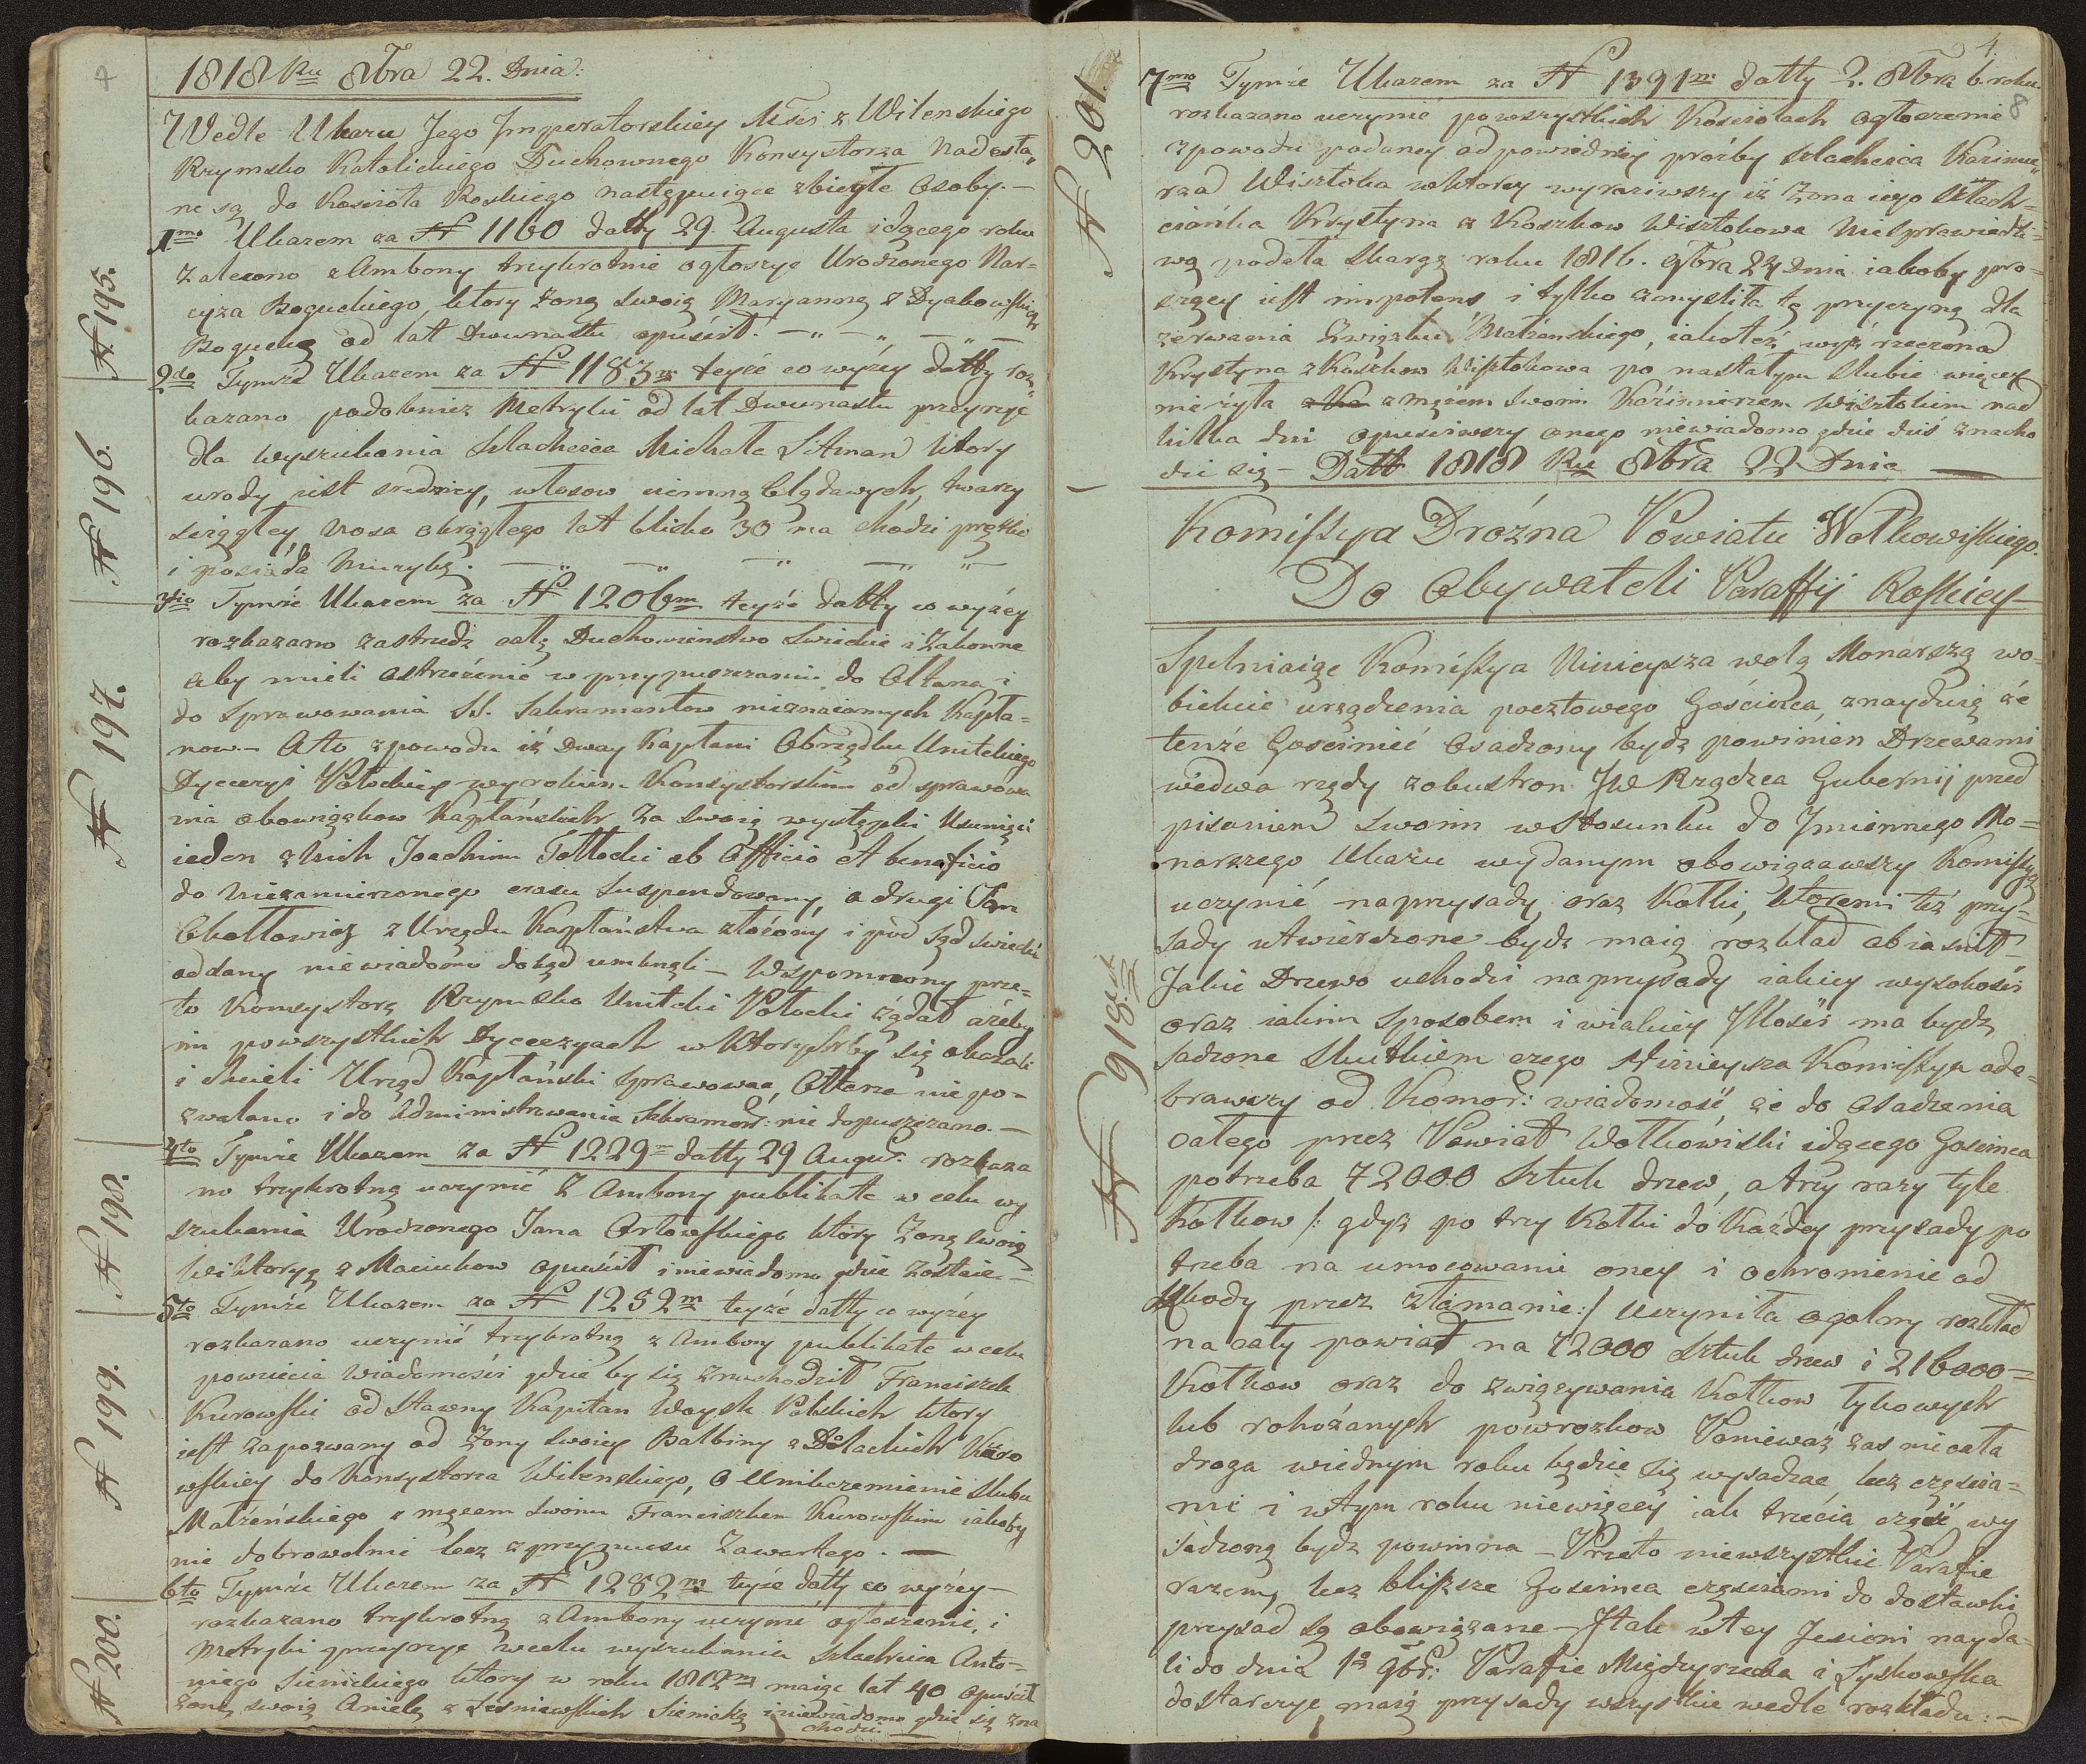 1818 Ru 8bra 22. Dnia:
Wedle Ukazu Jego Jmperatorskiey Mści z Wilenskiego
Rzymsko Katolickiego Duchownego Konsystorza Nadesła„
ne są do Kościoła Roskiego następuiące zbiegłe Osoby. —
N 195.
1mo Ukazem za N 1160 datty 29 Augusta idącego roku
Zalecono z Ambony trzykrotnie ogłoszyć Urodzonego Nar=
cyza Boguckiego, ktory żonę swoię Maryannę z Dyakowskich
Bogucką od lat Dwunastu opuścił. — „ — „ — „ —
N 196.
2do Tymże Ukazem za N 1183m teyże co wyżey datty roz„
kazano podobnież Metryki od lat Dwunastu przeyrzyć
dla wyszukania Szlachcica Michała Litman ktory
urody iest sredniey, włosow ciemno blądawych, twarzy
sciągłey, nosa okrągłego lat blisko 30 ma chodzi prętko
i posiada Muzykę. — „ — „ — „ — „ —
N 197.
3tio Tymże Ukazem za N 1206m teyże datty co wyżey
rozkazano zastrzedz całę Duchowieństwo Swieckie i Zakonne
aby mieli ostrzeżenie w przypuszczaniu do Ołtarza i
do sprawowania SS. Sakramentow nieznaiomych Kapła=
now. — A to z powodu iż Dway Kapłani Obrządku Unitskiego
Dyecezyi Połockiey wyrokiem Konsystorskim od sprawowa
nia obowiązkow Kapłańskich za swoię występki Usunięci
ieden z nich Joachim Tołłocki ab Officio et beneficio
do niezamierzonego czasu suspendowany, a drugi Jan
Chołłowicz z Urzędu Kapłaństwa złożony i pod sąd swiecki
oddany niewiadomo dokąd umknęli — Wspomniony prze=
to Konsystorz Rzymsko Unitski Połocki żądał ażeby
im powszystkich Dyecezyach w ktorychby się okazali
i chcieli Urząd Kapłański sprawować, Ołtarze nie po=
zwalano i do administrowania Sakrament: nie dopuszczano. —
N 198.
4to Tymże Ukazem za N 1229m datty 29 Augus: rozkaza
no trzykrotną uczynić z Ambony publikatę w celu wy
szukania Urodzonego Jana Orłowskiego ktory Żonę swoię
Wiktoryę z Maciukow opuścił i niewiadomo gdzie zostaie. —
N 199.
5to Tymże Ukazem za N 1252m teyże datty co wyżey
rozkazano uczynić trzykrotną z Ambony publikatę w celu
powzięcia Wiadomości gdzie by się znachodził Franciszek
Kurowski odstawny Kapitan Woysk Polskich ktory
iest zapozwany od Żony swoiey Balbiny z Bolackich Kuro
wskiey do Konsystorza Wilenskiego, o Unikczemienie slubu
Małżeńskiego z mężem swoim Franciszkiem Kurowskim iakoby
nie dobrowolnie lecz z przymusu zawartego. —
N 200.
6to Tymże Ukazem za N 1282m teyże datty co wyżey —
rozkazano trzykrotną z Ambony uczynić ogłoszenie, i
Metryki przeyrzyć w celu wyszukania Szlachcica Anto=
niego Sienickiego ktory w roku 1812m maiąc lat 40 opuścił
żonę swoię Anielę z Leśniewskich Sienicką i niewiadomo gdzie się zna
chodzi —
4.
8
N 201.
7mo Tymże Ukazem za N 1391m datty 2. 8bra b. roku
rozkazano uczynić powszystkich Kościołach ogłoszenie
z powodu podaney odpowiedniey proźby Szlachcica Kazimie„
rza Wisztoka w ktorey wyraziwszy iż Żona iego Szlach=
cianka Krystyna z Koszkow Wisztokowa Niesprawiedli=
wą podała Skargę roku 1816. 9bra 24 Dnia iakoby pro=
szący iest impotens i tylko zmysliła tę przyczynę dla
zerwania Związku Małżenskiego, iakoteż wyż rzeczona
Krystyna z Koszkow Wisztokowa po nastałym Slubie więcey
nieżyła z mężem swoim Kazimierzem Wisztokiem nad
kilka dni opuściwszy onego niewiadomo gdzie dziś znacho
dzi się — Datt 1818 Ru 8bra 22 Dnia —
Komissya Drożna Powiatu Wołkowiskiego.
Do Obywateli Paraffij Roskiey
N 918.
Spełniaiąc Komissya Ninieysza wolą Monarszą wo=
biekcie urządzenia pocztowego Gościńca, znayduię że
tenże Gościniec Osadzony bydź powinien Drzewami
wedwa rzędy zobustron JW Rządzca Gubernij pred
pisaniem Swoim w Stosunku do Jmiennego Mo=
narszego Ukazu wydanym obowiązawszy Komissyę
uczynić naprzysady, oraz Kołki, ktoremi też przy=
sady utwierdzone bydź maią rozkład obiasnił —
Jakie Drzewo uchodzi na przysady iakiey wysokości
oraz iakim sposobem i wiakiey Jlości ma bydź
sadzone Skutkiem czego Ninieysza Komissya ode=
brawszy od Komor: wiadomość, że do Osadzenia
całego przez Powiat Wołkowiski idącego Goscinca
potrzeba 72000 Sztuk drzew, a trzy razy tyle
Kołkow /: gdyż po trzy Kołki do Każdey przysady po
trzeba na umocowanie oney i ochronienie od
szkody przez złamanie :/ uczyniła ogolny rozkład
na cały powiat na 72000 Sztuk drzew i 216000=
Kołkow oraz do związywania Kołkow łykowych
lub rohożanych powrozkow Ponieważ zas nie cała
droga wiednym roku będzie się wysadzać, lecz częścia=
mi i wtym roku niewięcey iak trzecia część wy
sadzoną bydz powinna — Przeto niewszystkie Parafie
razem, lecz bliższe Goscinca częsciami do dostawki
przysad są obowiązane — Jtak wtey Jesieni nayda=
li do dnia 1o 9br: Parafie Międzyrzecka i Łyskowska
dostarczyć maią przysady wszystkie wedle rozkładu: —